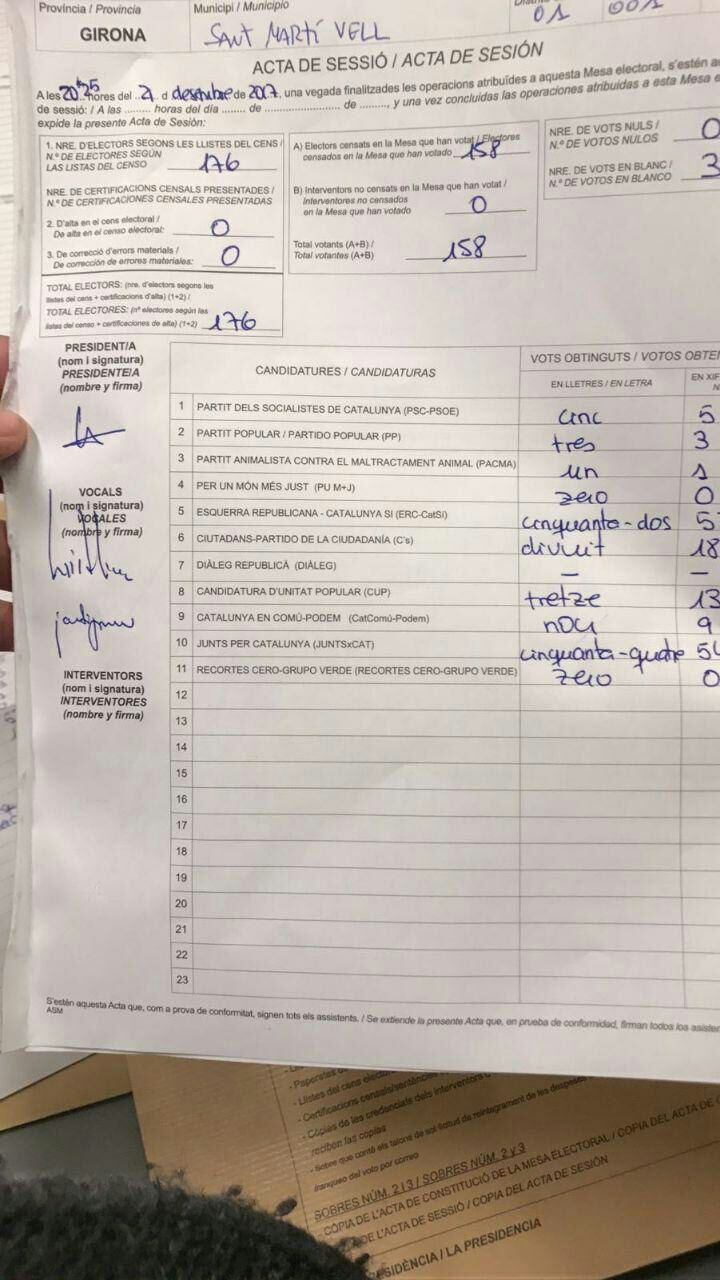 Província / Provincia
GIRONA
Municipi / Municipio
SANT MARTÍ VELL
01
001
ACTA DE SESSIÓ / ACTA DE SESIÓN
A les 20'25 hores del 21 d desembre de 2017, una vegada finalitzades les operacions atribuïdes a aquesta Mesa electoral, s'estén
de sessió: / A las ......... horas del día ......... de ......................... de ........., y una vez concluidas las operaciones atribuidas a esta Mesa
expide la presente Acta de Sesión:
1. NRE. D'ELECTORS SEGONS LES LLISTES DEL CENS /
N.º DE ELECTORES SEGÚN
LAS LISTAS DEL CENSO 176
NRE. DE CERTIFICACIONS CENSALS PRESENTADES /
N.º DE CERTIFICACIONES CENSALES PRESENTADAS
2. D'alta en el cens electoral /
De alta en el censo electoral: 0
3. De correcció d'errors materials /
De corrección de errores materiales: 0
TOTAL ELECTORS: (nre. d'electors segons les
llistes del cens + certificacions d'alta) (1+2) /
TOTAL ELECTORES: (nº electores según las
listas del censo + certificaciones de alta) (1+2) 176
A) Electors censats en la Mesa que han votat / Electores
censados en la Mesa que han votado 158
B) Interventors no censats en la Mesa que han votat /
Interventores no censados
en la Mesa que han votado 0
Total votants (A+B) /
Total votantes (A+B) 158
NRE. DE VOTS NULS /
N.º DE VOTOS NULOS 0
NRE. DE VOTS EN BLANC /
N.º DE VOTOS EN BLANCO 3
PRESIDENT/A
(nom i signatura)
PRESIDENTE/A
(nombre y firma)
VOCALS
(nom i signatura)
VOCALES
(nombre y firma)
INTERVENTORS
(nom i signatura)
INTERVENTORES
(nombre y firma)
CANDIDATURES / CANDIDATURAS
VOTS OBTINGUTS / VOTOS
EN LLETRES / EN LETRA
EN
1 PARTIT DELS SOCIALISTES DE CATALUNYA (PSC-PSOE) cinc 5
2 PARTIT POPULAR / PARTIDO POPULAR (PP) tres 3
3 PARTIT ANIMALISTA CONTRA EL MALTRACTAMENT ANIMAL (PACMA) un 1
4 PER UN MÓN MÉS JUST (PU M+J) zero 0
5 ESQUERRA REPUBLICANA - CATALUNYA SI (ERC-CatSí) cinquanta-dos 5
6 CIUTADANS-PARTIDO DE LA CIUDADANÍA (C's) divuit 18
7 DIÀLEG REPUBLICÀ (DIÀLEG) — —
8 CANDIDATURA D'UNITAT POPULAR (CUP) tretze 13
9 CATALUNYA EN COMÚ-PODEM (CatComú-Podem) nou 9
10 JUNTS PER CATALUNYA (JUNTSxCAT) cinquanta-quatre 5
11 RECORTES CERO-GRUPO VERDE (RECORTES CERO-GRUPO VERDE) zero 0
12
13
14
15
16
17
18
19
20
21
22
23
S'estén aquesta Acta que, com a prova de conformitat, signen tots els assistents. / Se extiende la presente Acta que, en prueba de conformidad, firman todos los
ASM
- Paperetes
- Llistes del cens
- Certificacions censals/sentències
- Còpies de les credencials dels interventors
reciben las copias
- Sobre que conté els talons de sol·licitud de reintegrament de les despeses
franqueo del voto por correo
SOBRES NÚM. 2 I 3 / SOBRES NÚM. 2 y 3
- CÒPIA DE L'ACTA DE CONSTITUCIÓ DE LA MESA ELECTORAL / COPIA DEL ACTA DE
DE L'ACTA DE SESSIÓ / COPIA DEL ACTA DE SESIÓN
/ LA PRESIDENCIA